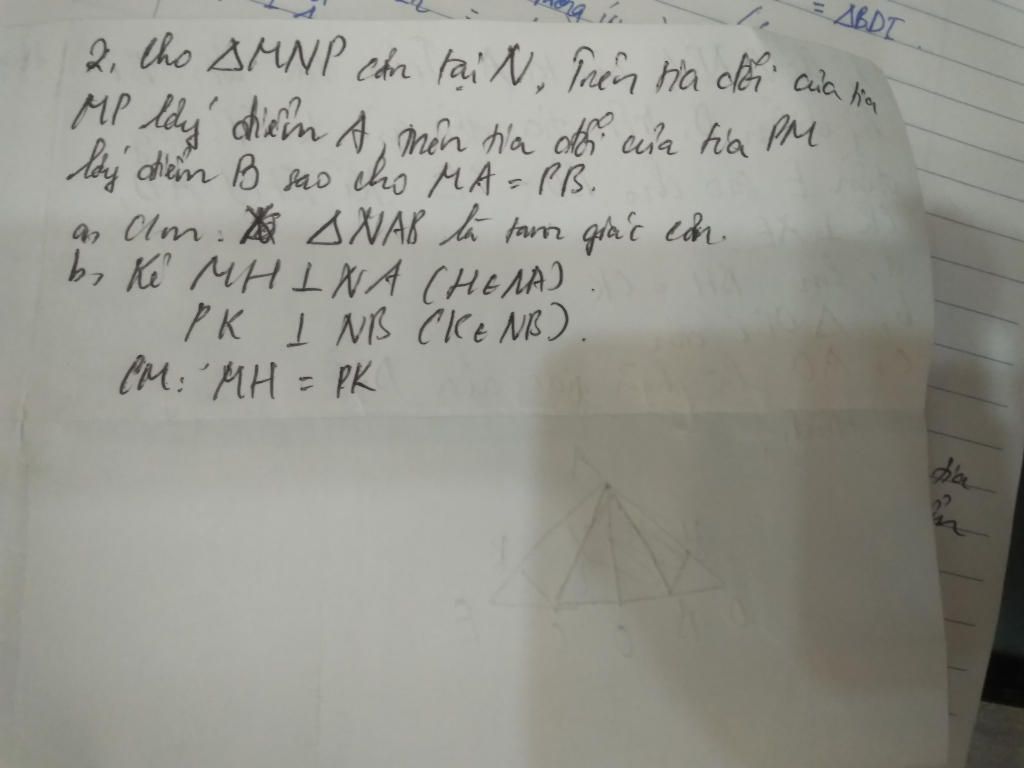 = ΔBDI.
2, Cho ΔMNP cân tại N, Trên tia đối của tia
MP lấy điểm A, trên tia đối của tia PM
lấy điểm B sao cho MA = PB.
a, Cm: ΔNAB là tam giác cân.
b, Kẻ MH ⊥ NA (H∈NA).
PK ⊥ NB (K∈NB).
CM: MH = PK